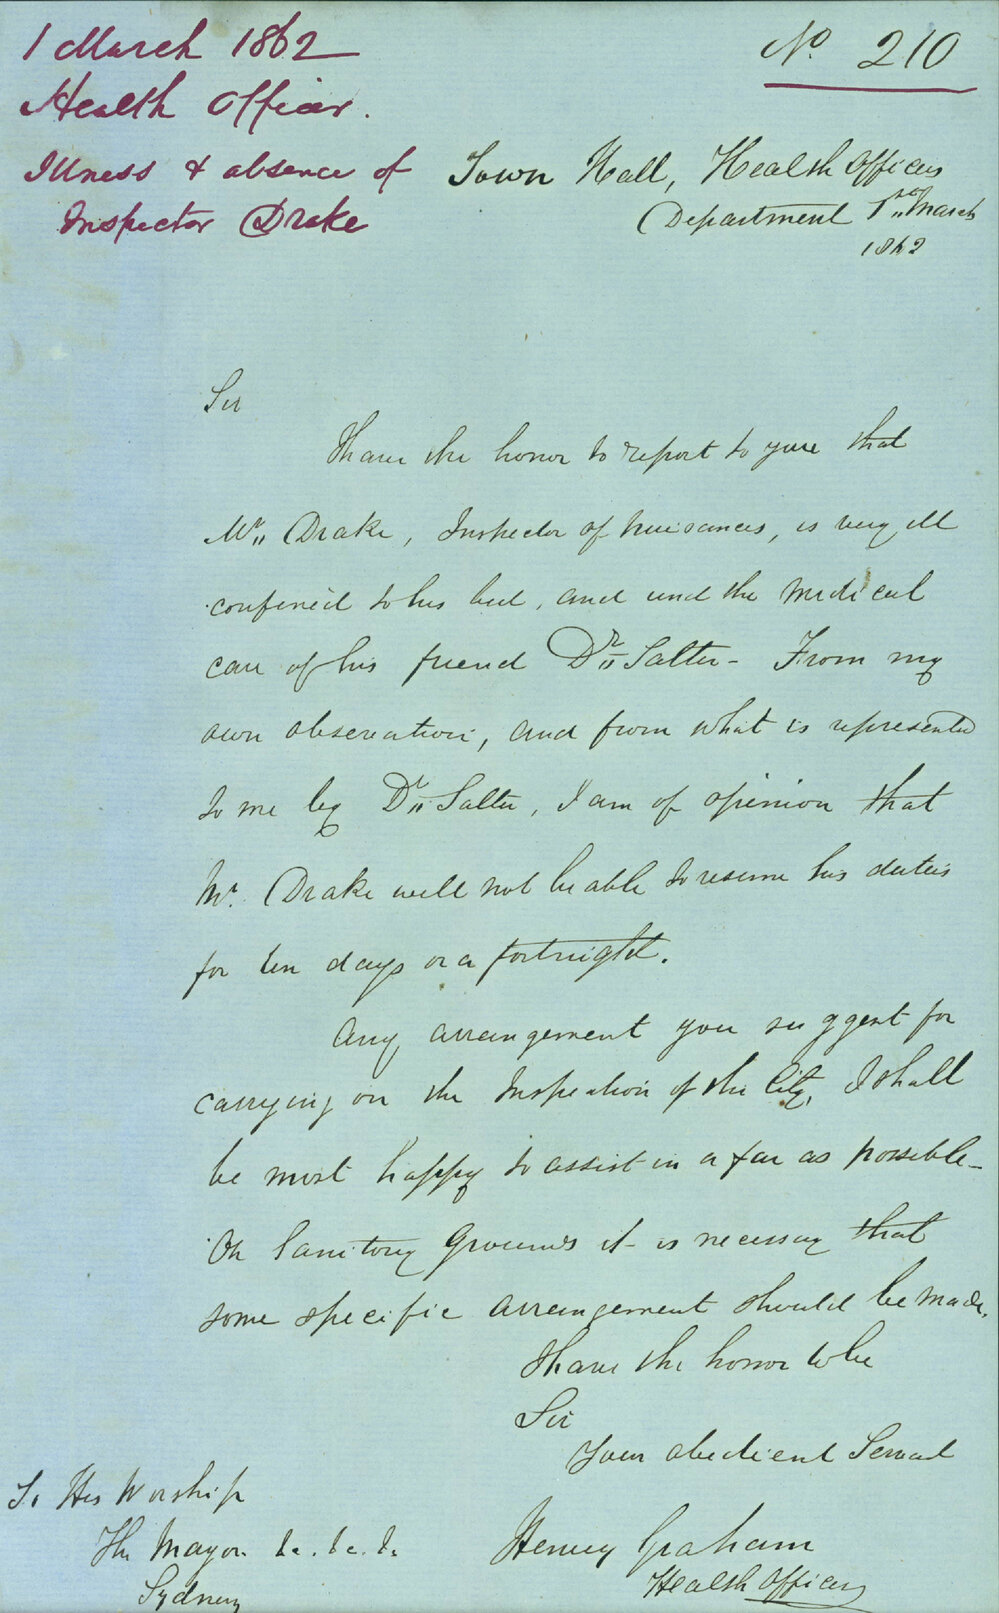 1 March 1862
Health Officer.
Illness & absence of
Inspector Drake
No. 210
Town Hall, Health Officers
Department 1st March
1862
Sir
I have the honor to report to you that
Mr. Drake, Inspector of nuisances, is very ill
confined to his bed, and und the medical
care of his friend Dr. Salter - From my
own observation, and from what is represented
to me by Dr. Salter, I am of opinion that
Mr. Drake will not be able to resume his duties
for ten days or a fortnight.
Any arrangement you suggest for
carrying on the Inspection of the City, I shall
be most happy to assist in a far as possible -
On Sanitory Grounds it is necessary that
some specific arrangement should be made.
I have the honor to be
Sir
Your obedient Servant
Henry Graham
Health Officer
To His Worship
The Mayor &c. &c. &c.
Sydney